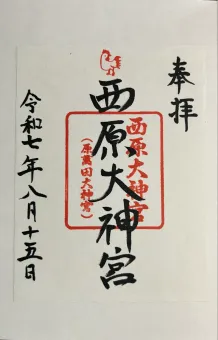 奉拝
西原大神宮
西原大神宮
(原萬田大神宮)
令和七年八月十五日